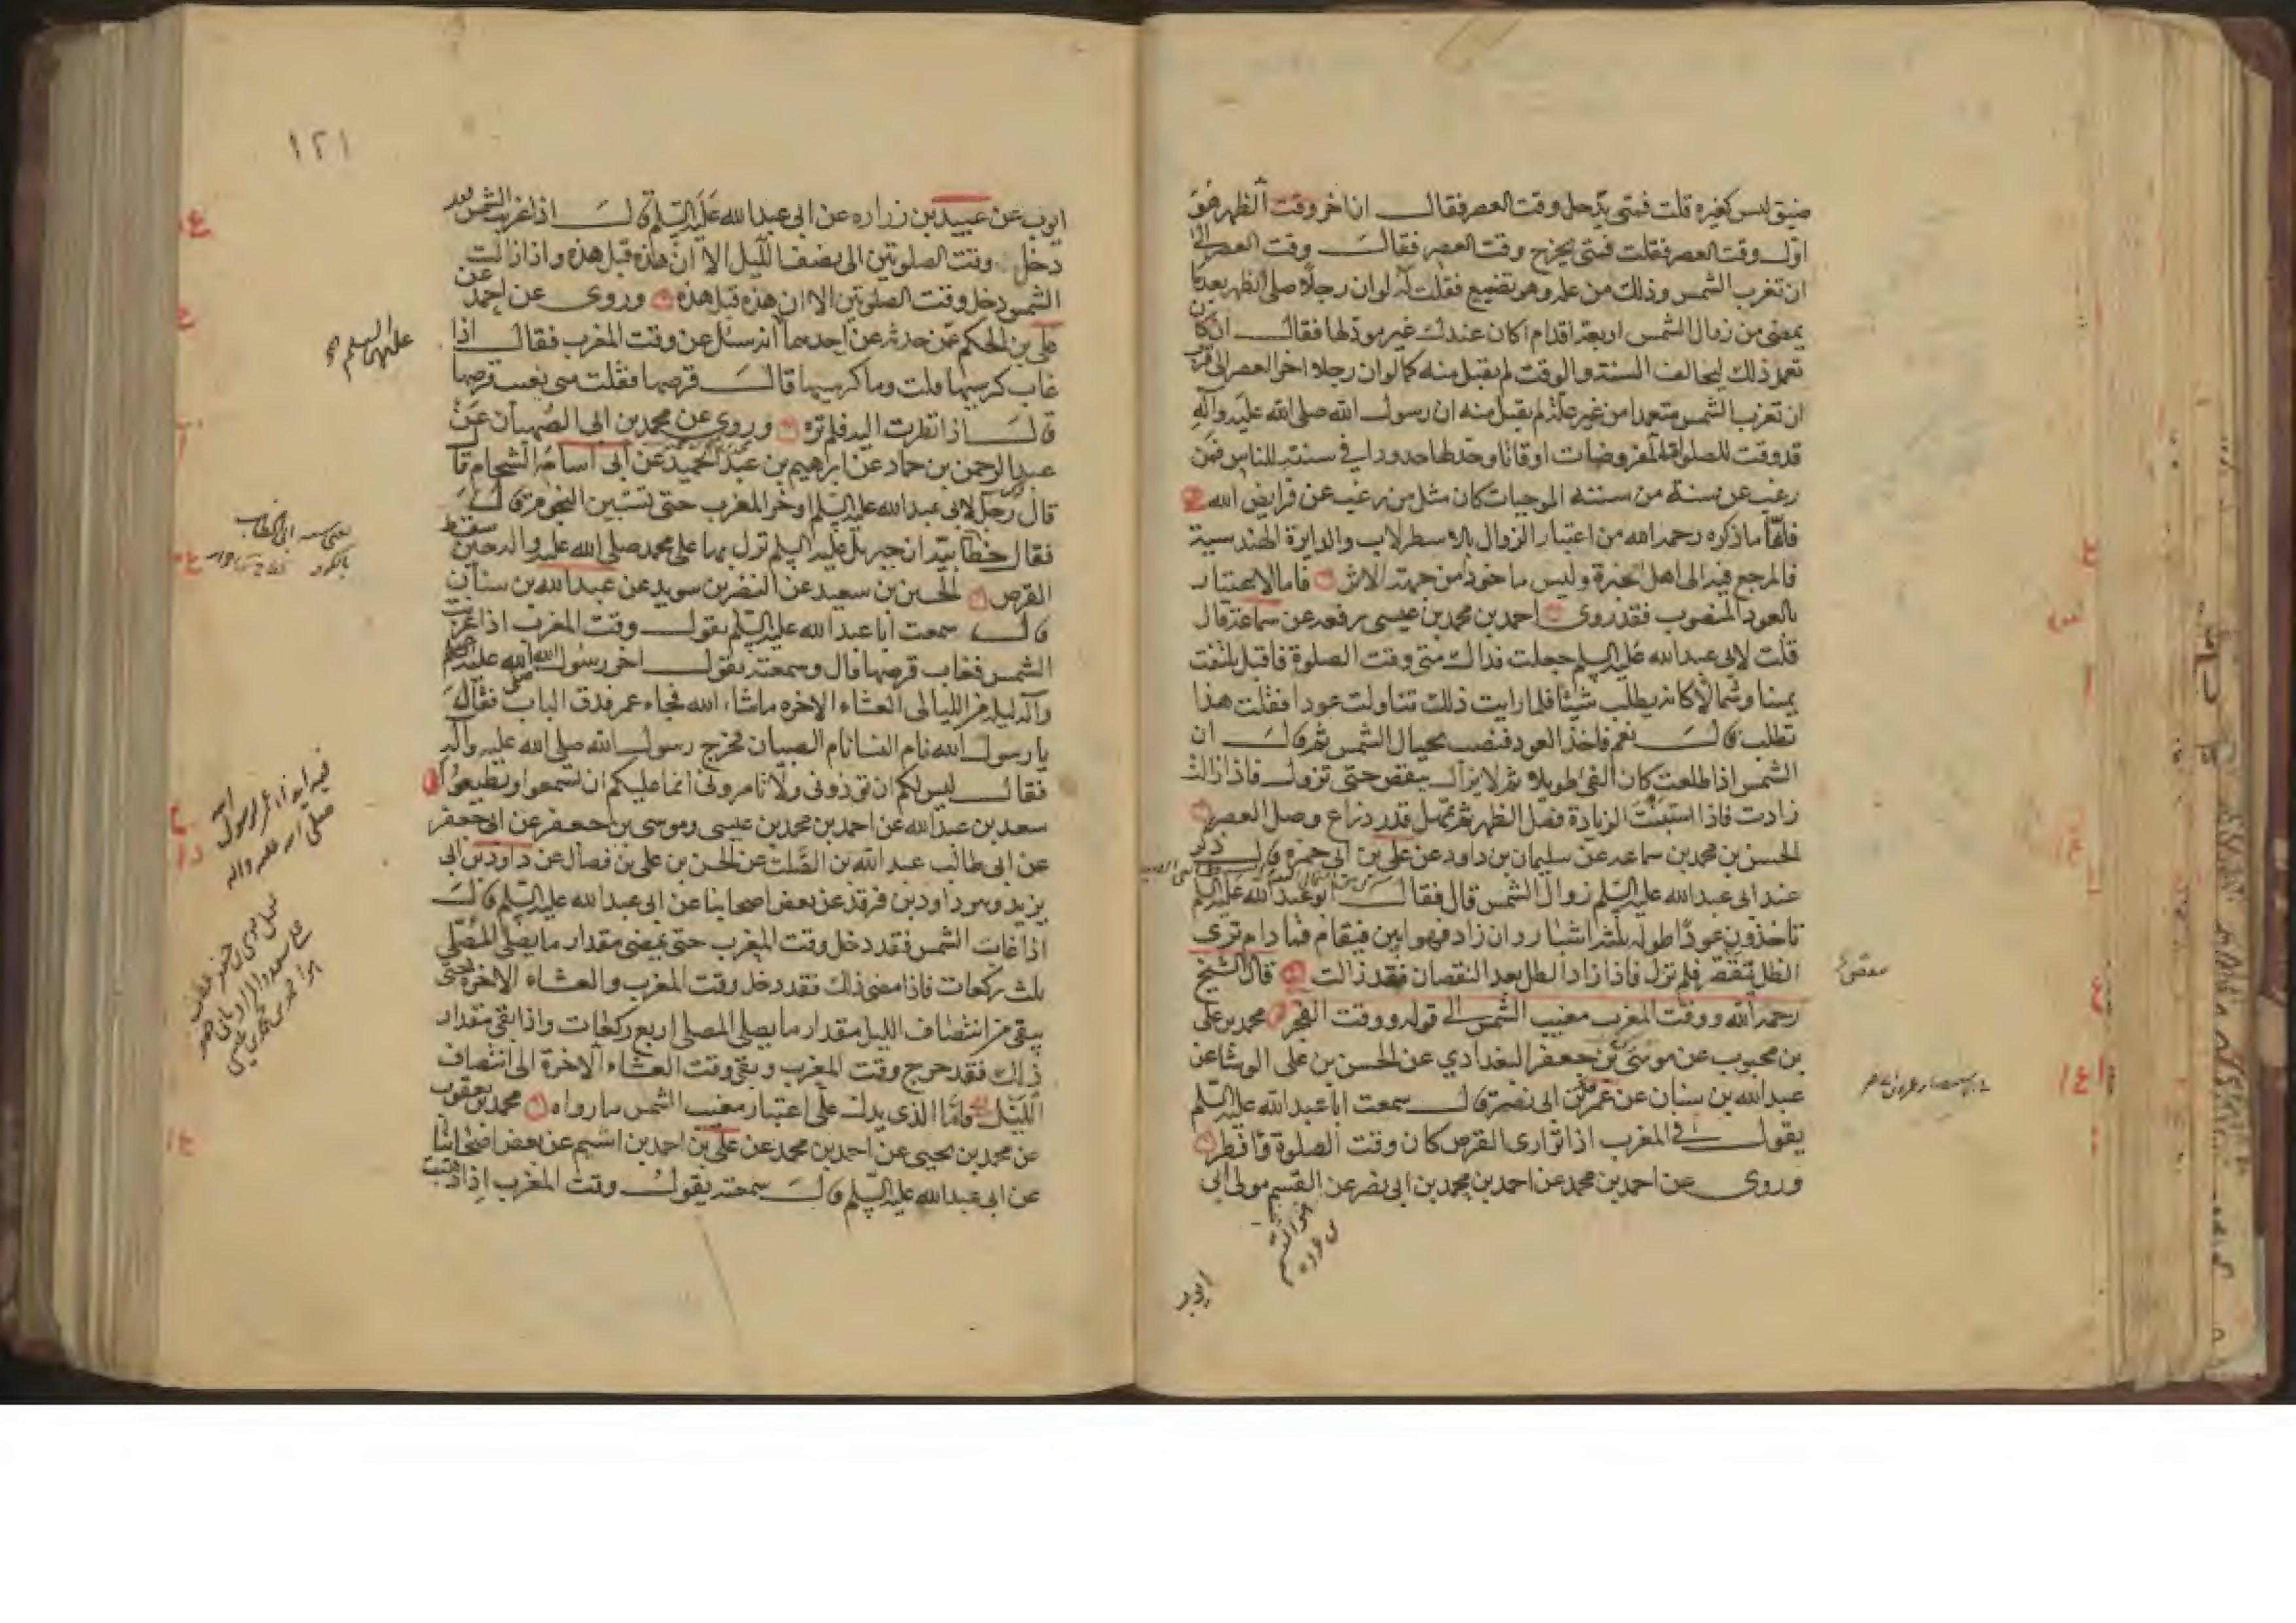 ضيق ليس كغيره قلت فمتى يدخل وقت العصر فقال ان اخر وقت الظهر هو
اول وقت العصر فقلت فمتى يخرج وقت العصر فقال وقت العصر الى
ان تغرب الشمس وذلك من علة وهو تضييع فقلت له لو ان رجلا صلى الظهر بعد ما
يمضى من زوال الشمس اربعة اقدام اكان عندك غير مؤد لها فقال ان كان
تعمد ذلك ليخالف السنة والوقت لم يقبل منه كما لو ان رجلا اخر العصر الى قرب
ان تغرب الشمس متعمدا من غير علة لم يقبل منه ان رسول الله صلى الله عليه وآله
قد وقت للصلوة المفروضات اوقاتا وحد لها حدودا في سنته للناس فمن
رغب عن سنة من سننه الموجبات كان مثل من رغب عن فرايض الله
فاما ما ذكره رحمه الله من اعتبار الزوال بالاسطرلاب والدايرة الهندسية
فالمرجع فيه الى اهل الخبرة وليس ماخوذا من جهة الاثر فاما الاعتبار
بالعود المنصوب فقد روى احمد بن محمد بن عيسى رفعه عن سماعة قال
قلت لابى عبد الله عليه السلم جعلت فداك متى وقت الصلوة فاقبل يلتفت
يمينا وشمالا كانه يطلب شيئا فلما رايت ذلك تناولت عودا فقلت هذا
تطلب قال نعم فاخذ العود فنصب بحيال الشمس ثم قال ان
الشمس اذا طلعت كان الفئ طويلا ثم لا يزال ينقص حتى تزول فاذا زالت
زادت فاذا استبنت الزيادة فصل الظهر ثم تمهل قدر ذراع وصل العصر
الحسن بن محمد بن سماعه عن سليمان بن داود عن علي بن ابى حمزة قال ذكر
عند ابى عبد الله عليه السلم زوال الشمس قال فقال ابو عبد الله عليه السلم
تاخذون عودا طوله ثلثة اشبار وان زاد فهو ابين فيقام فما دام ترى
الظل ينقص فلم تزل فاذا زاد الظل بعد النقصان فقد زالت قال الشيخ
رحمه الله ووقت المغرب مغيب الشمس الى قوله ووقت الفجر محمد بن على
بن محبوب عن موسى بن جعفر البغدادي عن الحسن بن على الوشا عن
عبد الله بن سنان عن عمرو بن ابى نصر قال سمعت ابا عبد الله عليه السلم
يقول في المغرب اذا توارى القرص كان وقت الصلوة وافطر
وروى عن احمد بن محمد عن احمد بن محمد بن ابى نصر عن القسم مولى ابى
ايوب
١٢١
ايوب عن عبيد بن زراره عن ابى عبد الله عليه السلم قال اذا غربت الشمس فقد
دخل وقت الصلوتين الى نصف الليل الا ان هذه قبل هذه واذا زالت
الشمس دخل وقت الصلوتين الا ان هذه قبل هذه وروى عن احمد عن
علي بن الحكم عمن حدثه عن احدهما انه سئل عن وقت المغرب فقال اذا
غاب كرسيها قلت وما كرسيها قال قرصها فقلت متى يغيب قرصها
قال اذا نظرت اليه فلم تره وروى عن محمد بن ابى الصهبان عن
عبد الرحمن بن حماد عن ابرهيم بن عبد الحميد عن ابى اسامه الشحام قال
قال رجل لابى عبد الله عليه السلم اوخر المغرب حتى تستبين النجوم قال
فقال خطابية ان جبريل عليه السلم نزل بها على محمد صلى الله عليه واله حين سقط
القرص الحسين بن سعيد عن النضر بن سويد عن عبد الله بن سنان
قال سمعت ابا عبد الله عليه السلم يقول وقت المغرب اذا غربت
الشمس فغاب قرصها قال وسمعته يقول اخر رسول الله صلى الله عليه
وآله ليلة من الليالى العشاء الاخره ما شاء الله فجاء عمر فدق الباب فقال
يا رسول الله نام النسا نام الصبيان فخرج رسول الله صلى الله عليه وآله
فقال ليس لكم ان توذونى ولا تامرونى انما عليكم ان تسمعوا وتطيعوا
سعد بن عبد الله عن احمد بن محمد بن عيسى وموسى بن جعفر عن ابى جعفر
عن ابى طالب عبد الله بن الصلت عن الحسن بن علي بن فضال عن داود بن ابى
يزيد وهو داود بن فرقد عن بعض اصحابنا عن ابى عبد الله عليه السلم قال
اذا غابت الشمس فقد دخل وقت المغرب حتى يمضى مقدار ما يصلى المصلى
ثلث ركعات فاذا مضى ذلك فقد دخل وقت المغرب والعشاء الاخرة حتى
يبقى من انتصاف الليل مقدار ما يصلى المصلى اربع ركعات واذا بقى مقدار
ذلك فقد خرج وقت المغرب وبقى وقت العشاء الاخرة الى انتصاف
الليل فاما الذى يدل على اعتبار مغيب الشمس ما رواه محمد بن يعقوب
عن محمد بن يحيى عن احمد بن محمد عن علي بن احمد بن اشيم عن بعض اصحابنا
عن ابى عبد الله عليه السلم قال سمعته يقول وقت المغرب اذا ذهبت
عليهما السلم